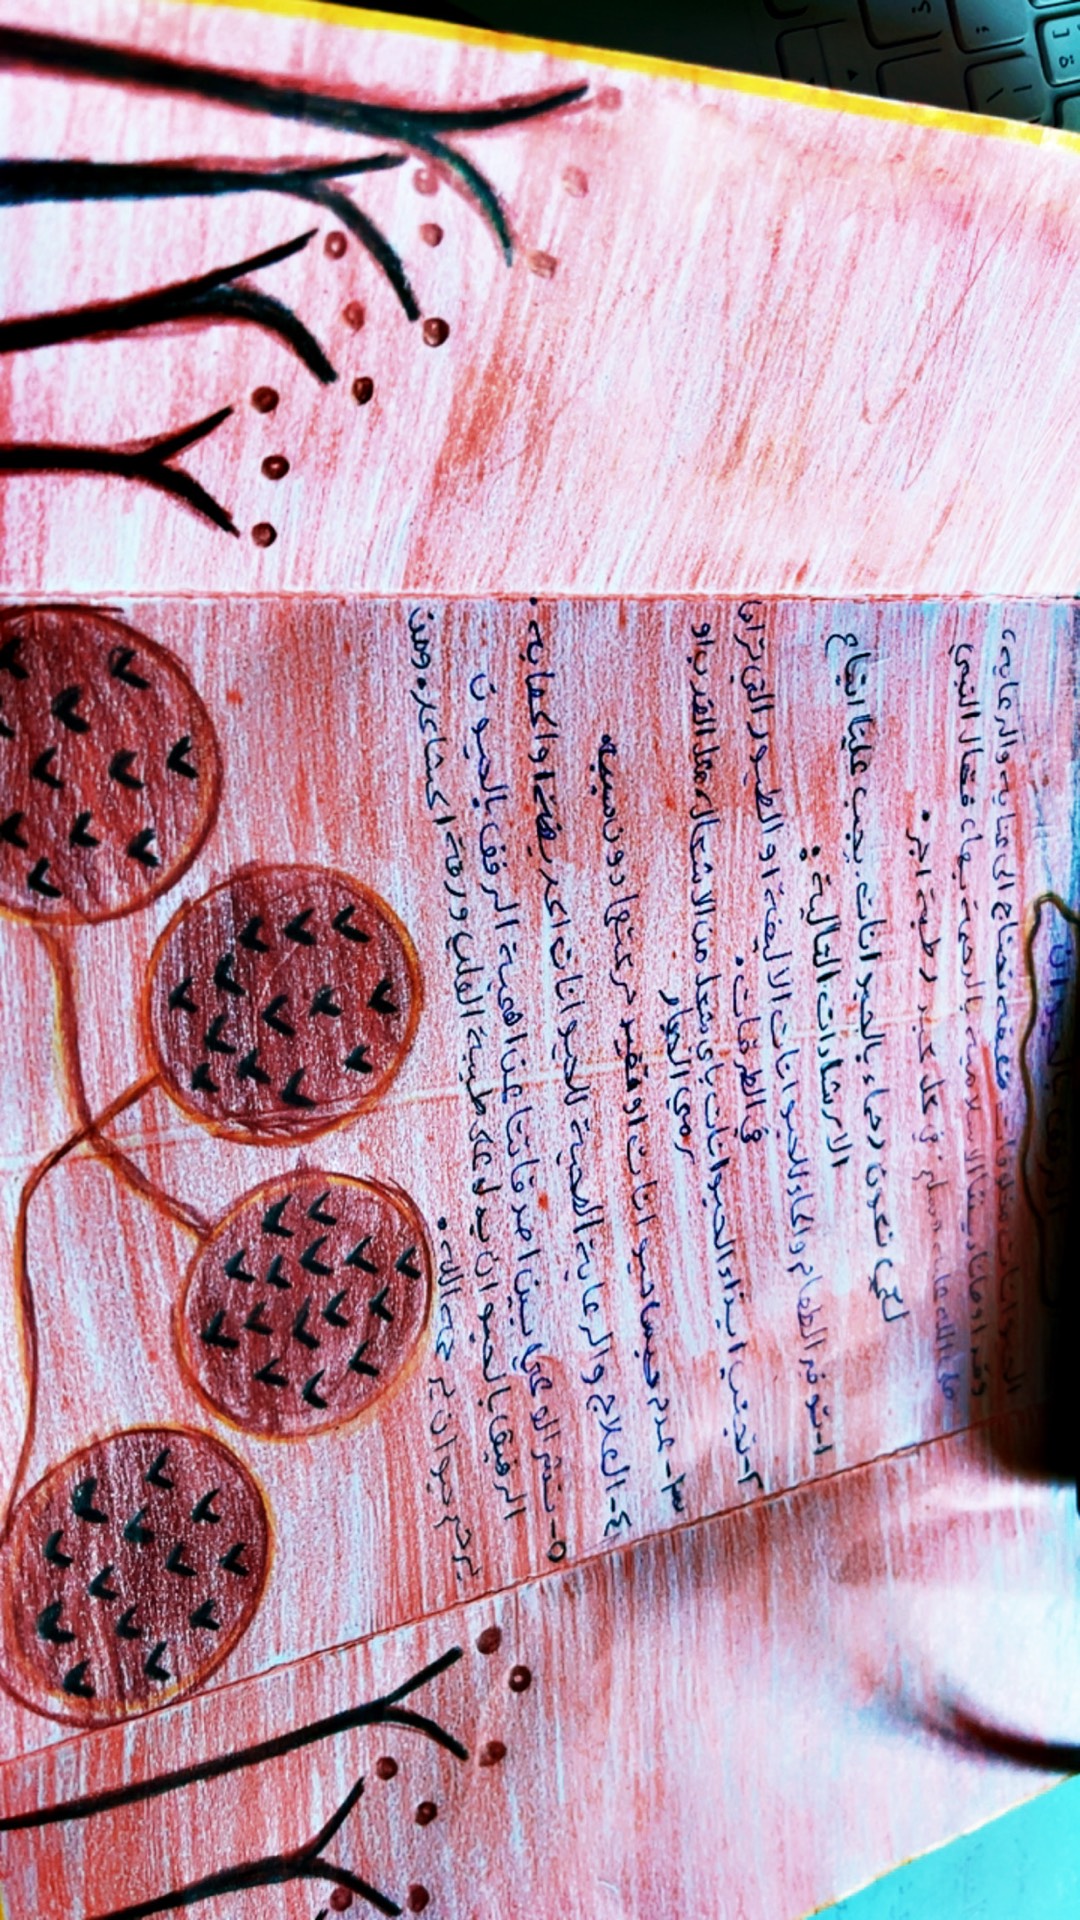 الرفق بالحيوان
الحيوانات مخلوقات ضعيفة تحتاج الى عناية والرعاية،
وقد اوصانا ديننا الاسلامية بالرحمة بهاء فقال النبي
صلى الله عليه وسلم في كل كبد رطبة اجر.
لكي نكون رحماء بالحيوانات يجب علينا اتباع
الارشادات التالية :
١- توفر الطعام والماء للحيوانات الاليفة او الطيور التي
في الطرقات.
٢- تجنب ايذاء الحيوانات باي شكل من الاشكال مثل الضرب او
رمي الحجار
٣- عدم حبسا حيوانات او تقيد حركتها دون سبب
٤- العلاج والرعاية الصحية للحيوانات المريضة او المصابة.
٥- نشر الوعي بين اصدقائنا عن اهمية الرفق بالحيون
الرفق بالحيوان يدل على طيبة القلب ورحمة المشاعره ومن
يرحم حيوان يرحمه الله.